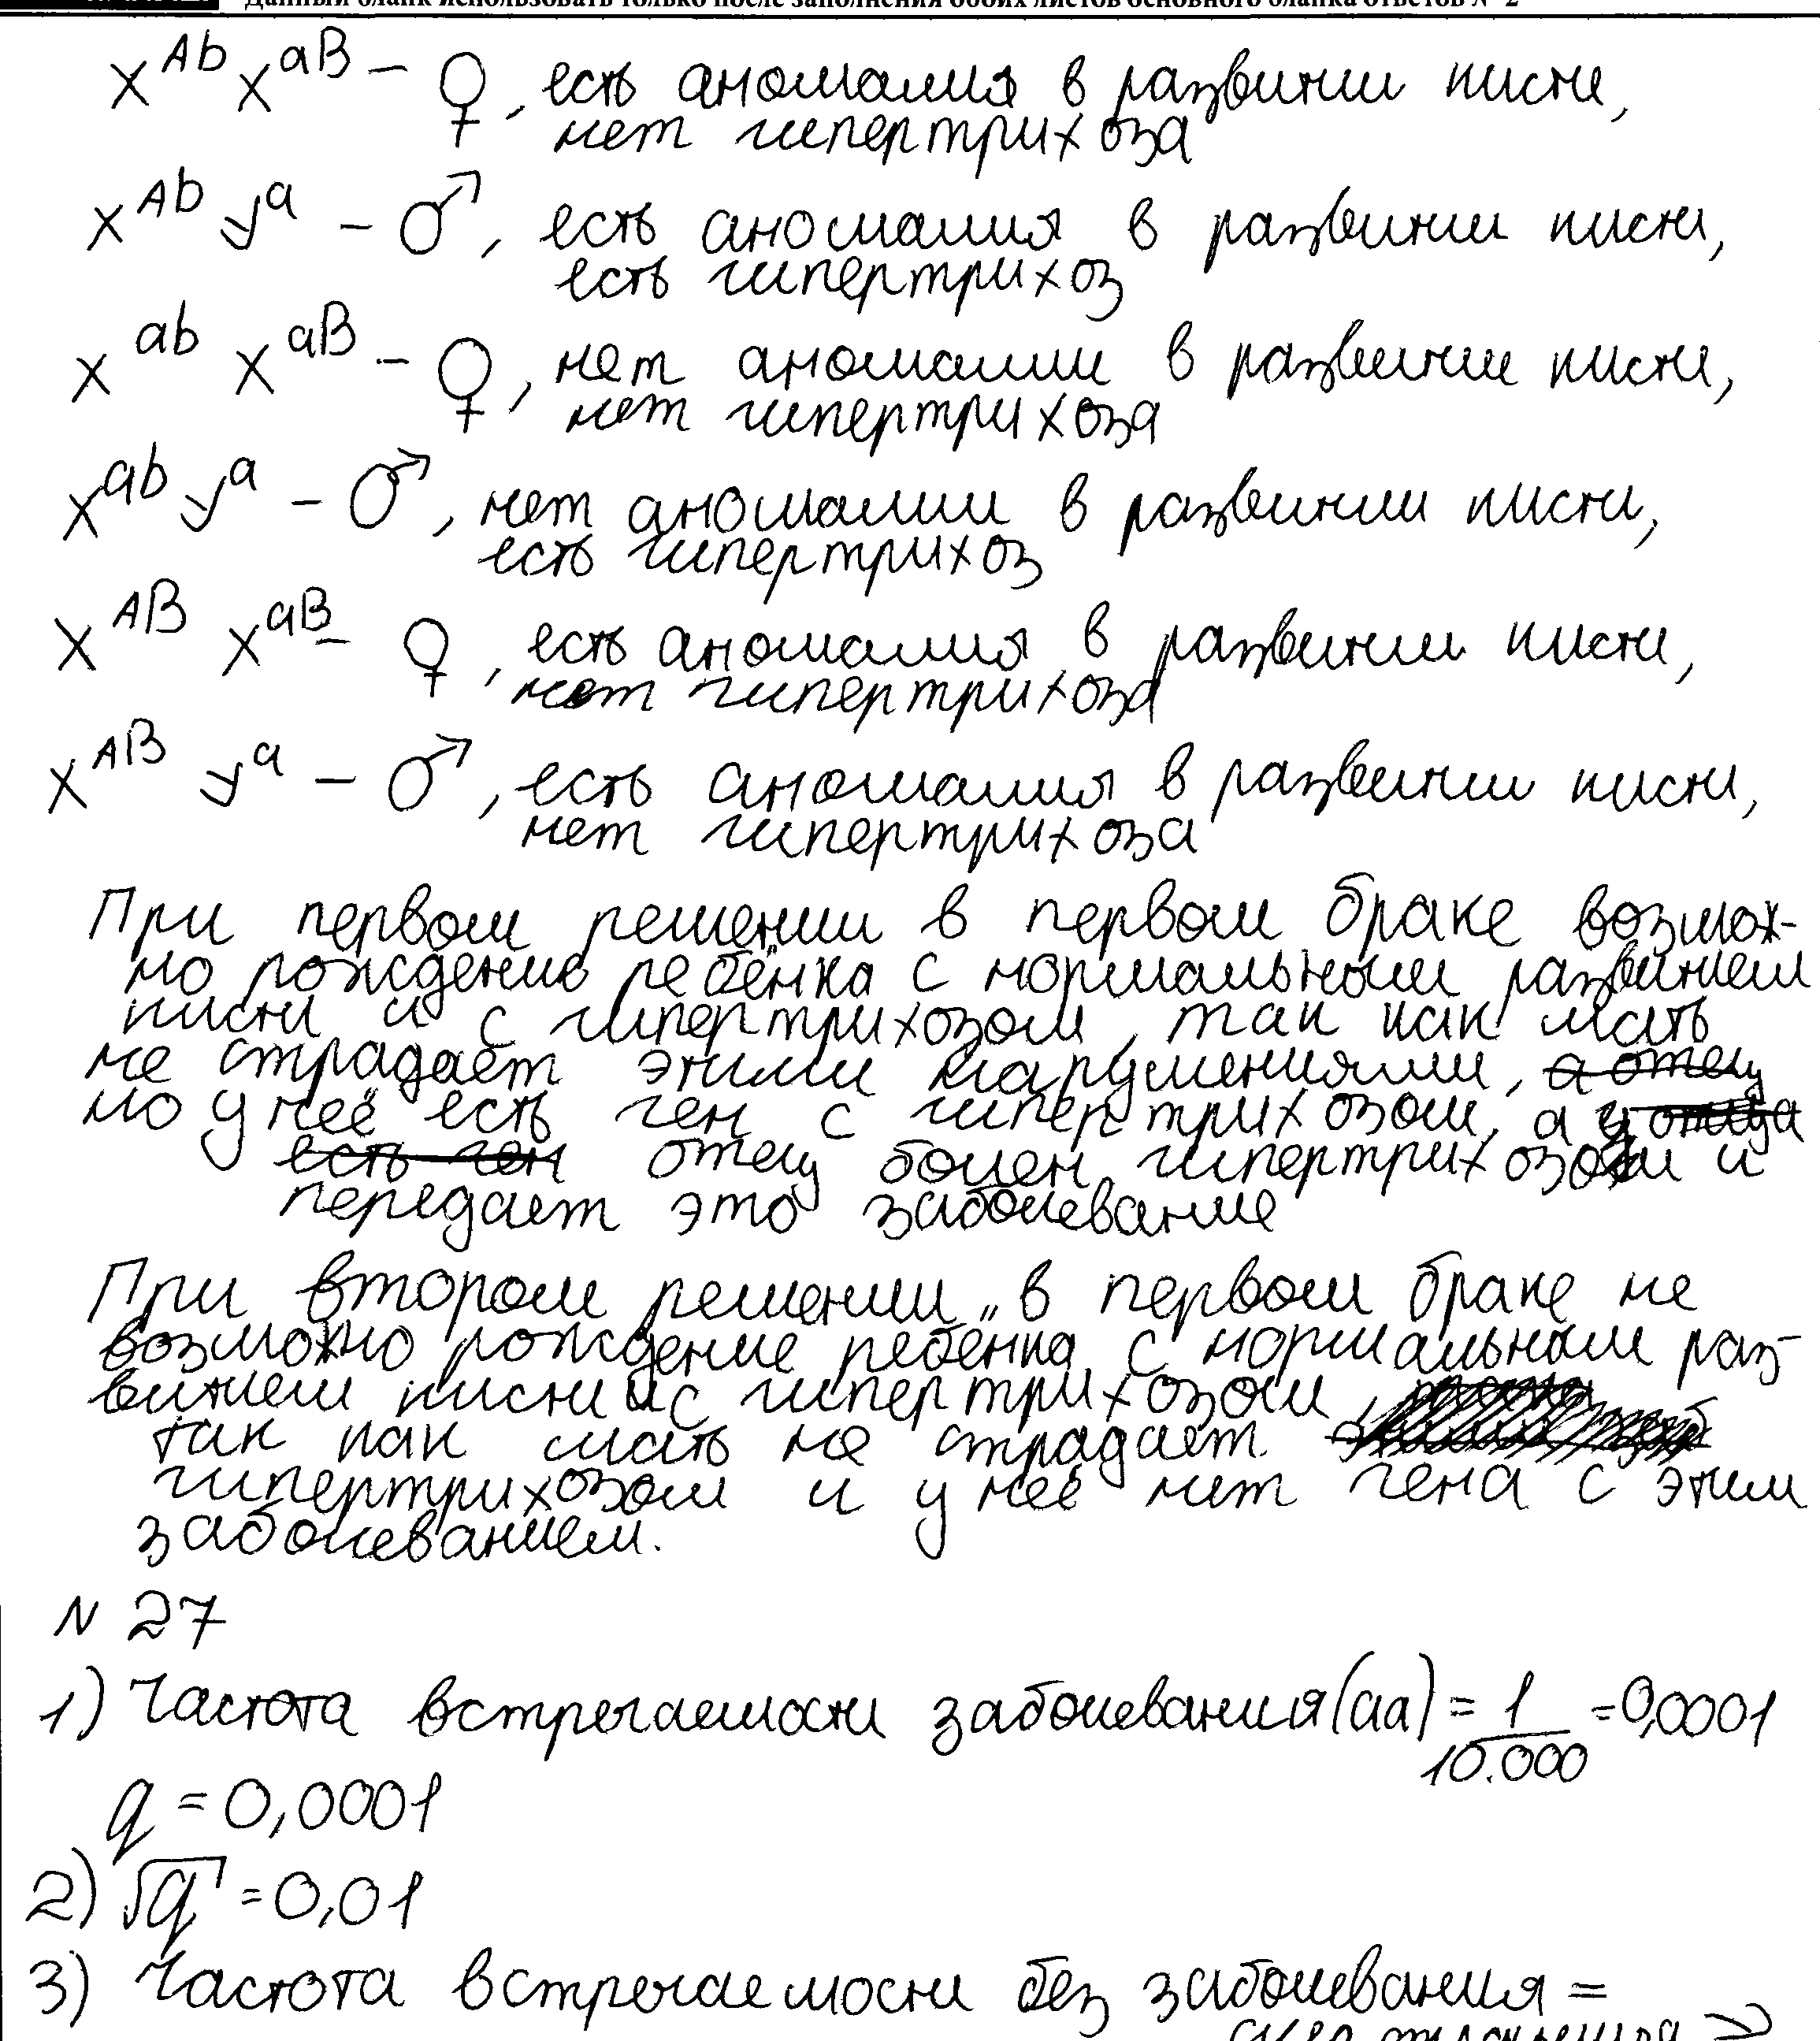 Данный бланк использовать только после заполнения обоих листов основного бланка ответов № 2
X^Ab X^aB – ♀, есть аномалия в развитии кисти,
нет гипертрихоза
X^Ab y^a – ♂, есть аномалия в развитии кисти,
есть гипертрихоз
X^ab X^aB – ♀, нет аномалии в развитии кисти,
нет гипертрихоза
X^ab y^a – ♂, нет аномалии в развитии кисти,
есть гипертрихоз
X^AB X^aB – ♀, есть аномалия в развитии кисти,
нет гипертрихоза
X^AB y^a – ♂, есть аномалия в развитии кисти,
нет гипертрихоза
При первом решении в первом браке возмож-
но рождение ребёнка с нормальным развитием
кисти и с гипертрихозом, так как мать
не страдает этими нарушениями, а отец
но у неё есть ген с гипертрихозом, а у отца
есть ген отец болен гипертрихозом и
передает это заболевание
При втором решении в первом браке не
возможно рождение ребёнка с нормальным раз-
витием кисти и с гипертрихозом
так как мать не страдает
гипертрихозом и у неё нет гена с этим
заболеванием.
N 27
1) Частота встречаемости заболевания (aa) = 1/10.000 = 0,0001
q = 0,0001
2) √q = 0,01
3) Частота встречаемости без заболевания =